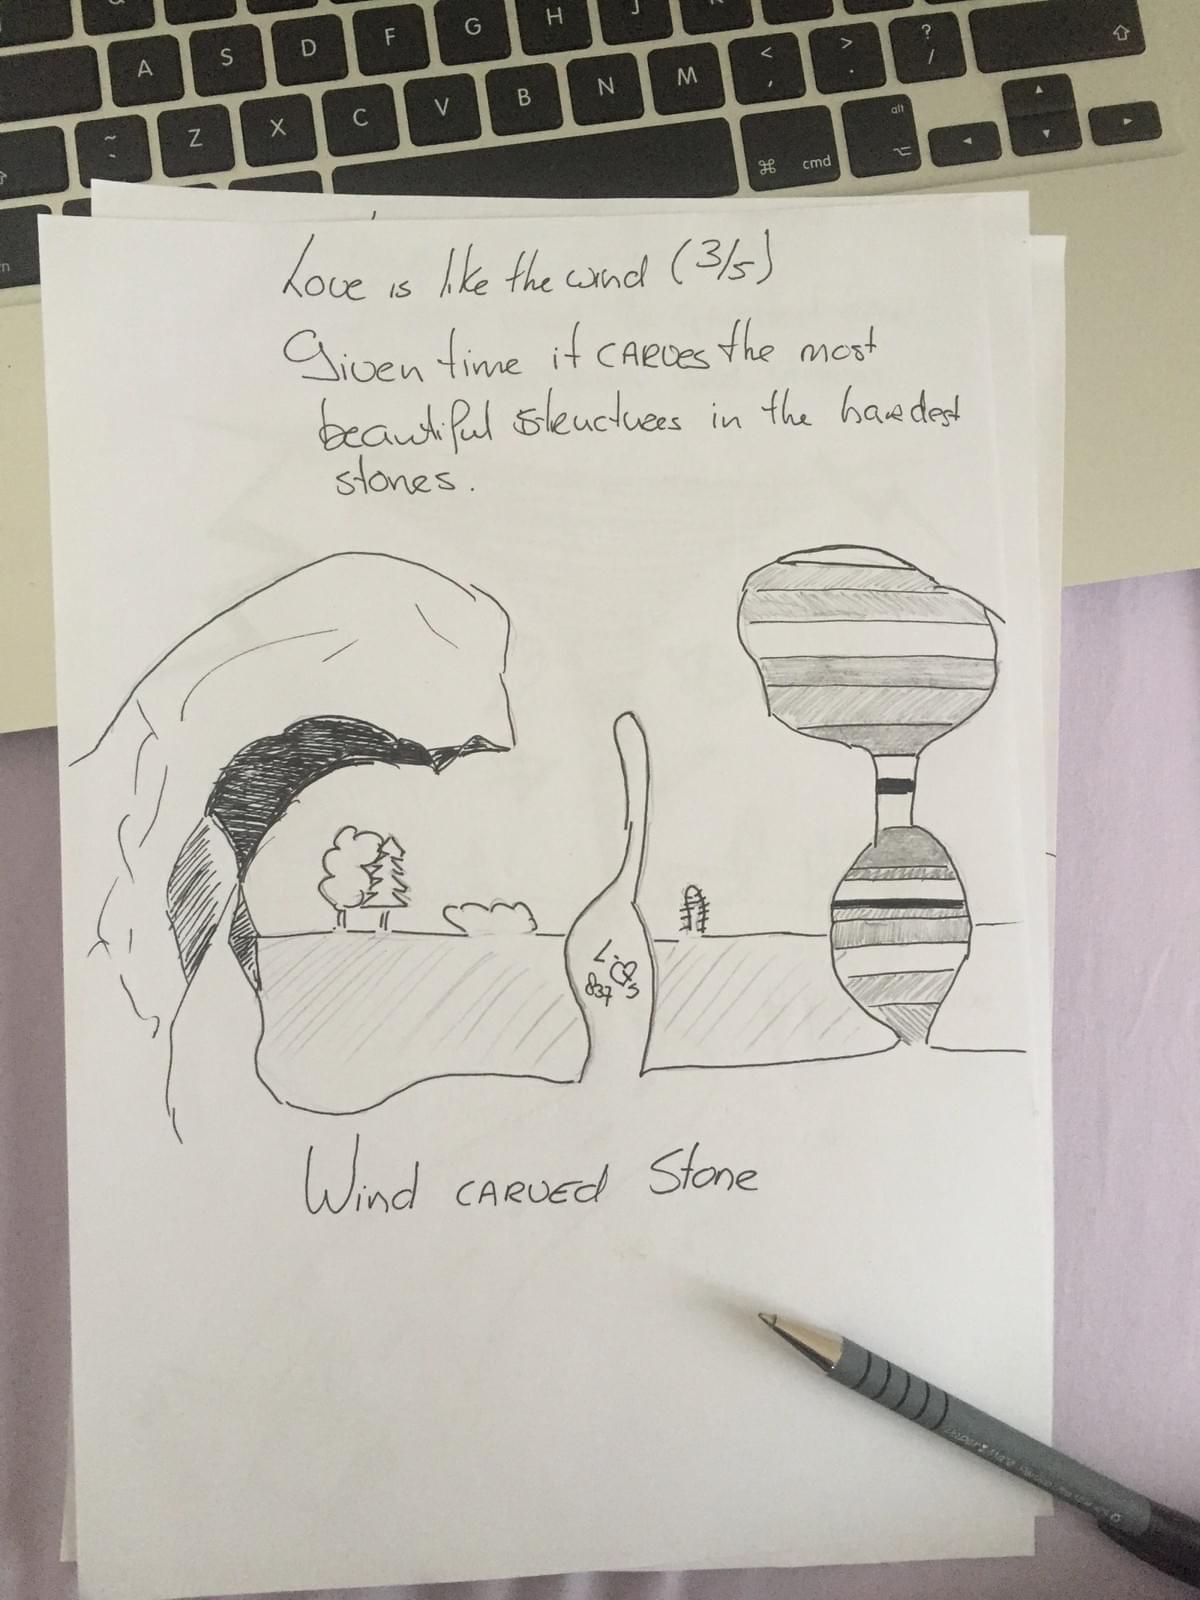 A S D F G H J K
Z X C V B N M < , > . ? /
alt
cmd
Love is like the wind (3/5)
Given time it CARVES the most
beautiful structures in the hardest
stones.
L.
837 S
Wind CARVED Stone